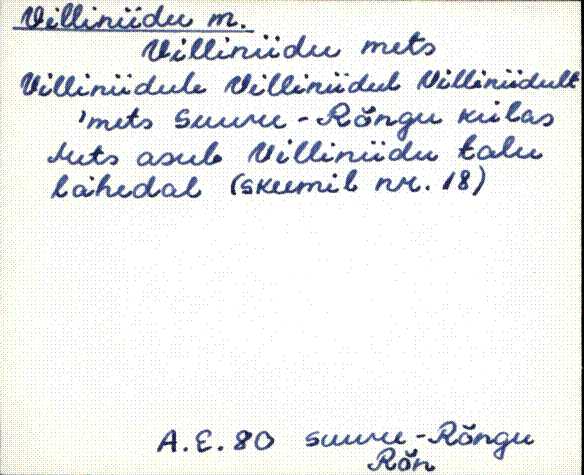 Villiniidu m.
Villiniidu mets
Villiniidule Villiniidul Villiniidult
'mets Suuru-Rõngu külas
Mets asub Villiniidu talu
lähedal (skeemil nr. 18)
A.E. 80 Suuru-Rõngu
Rõn